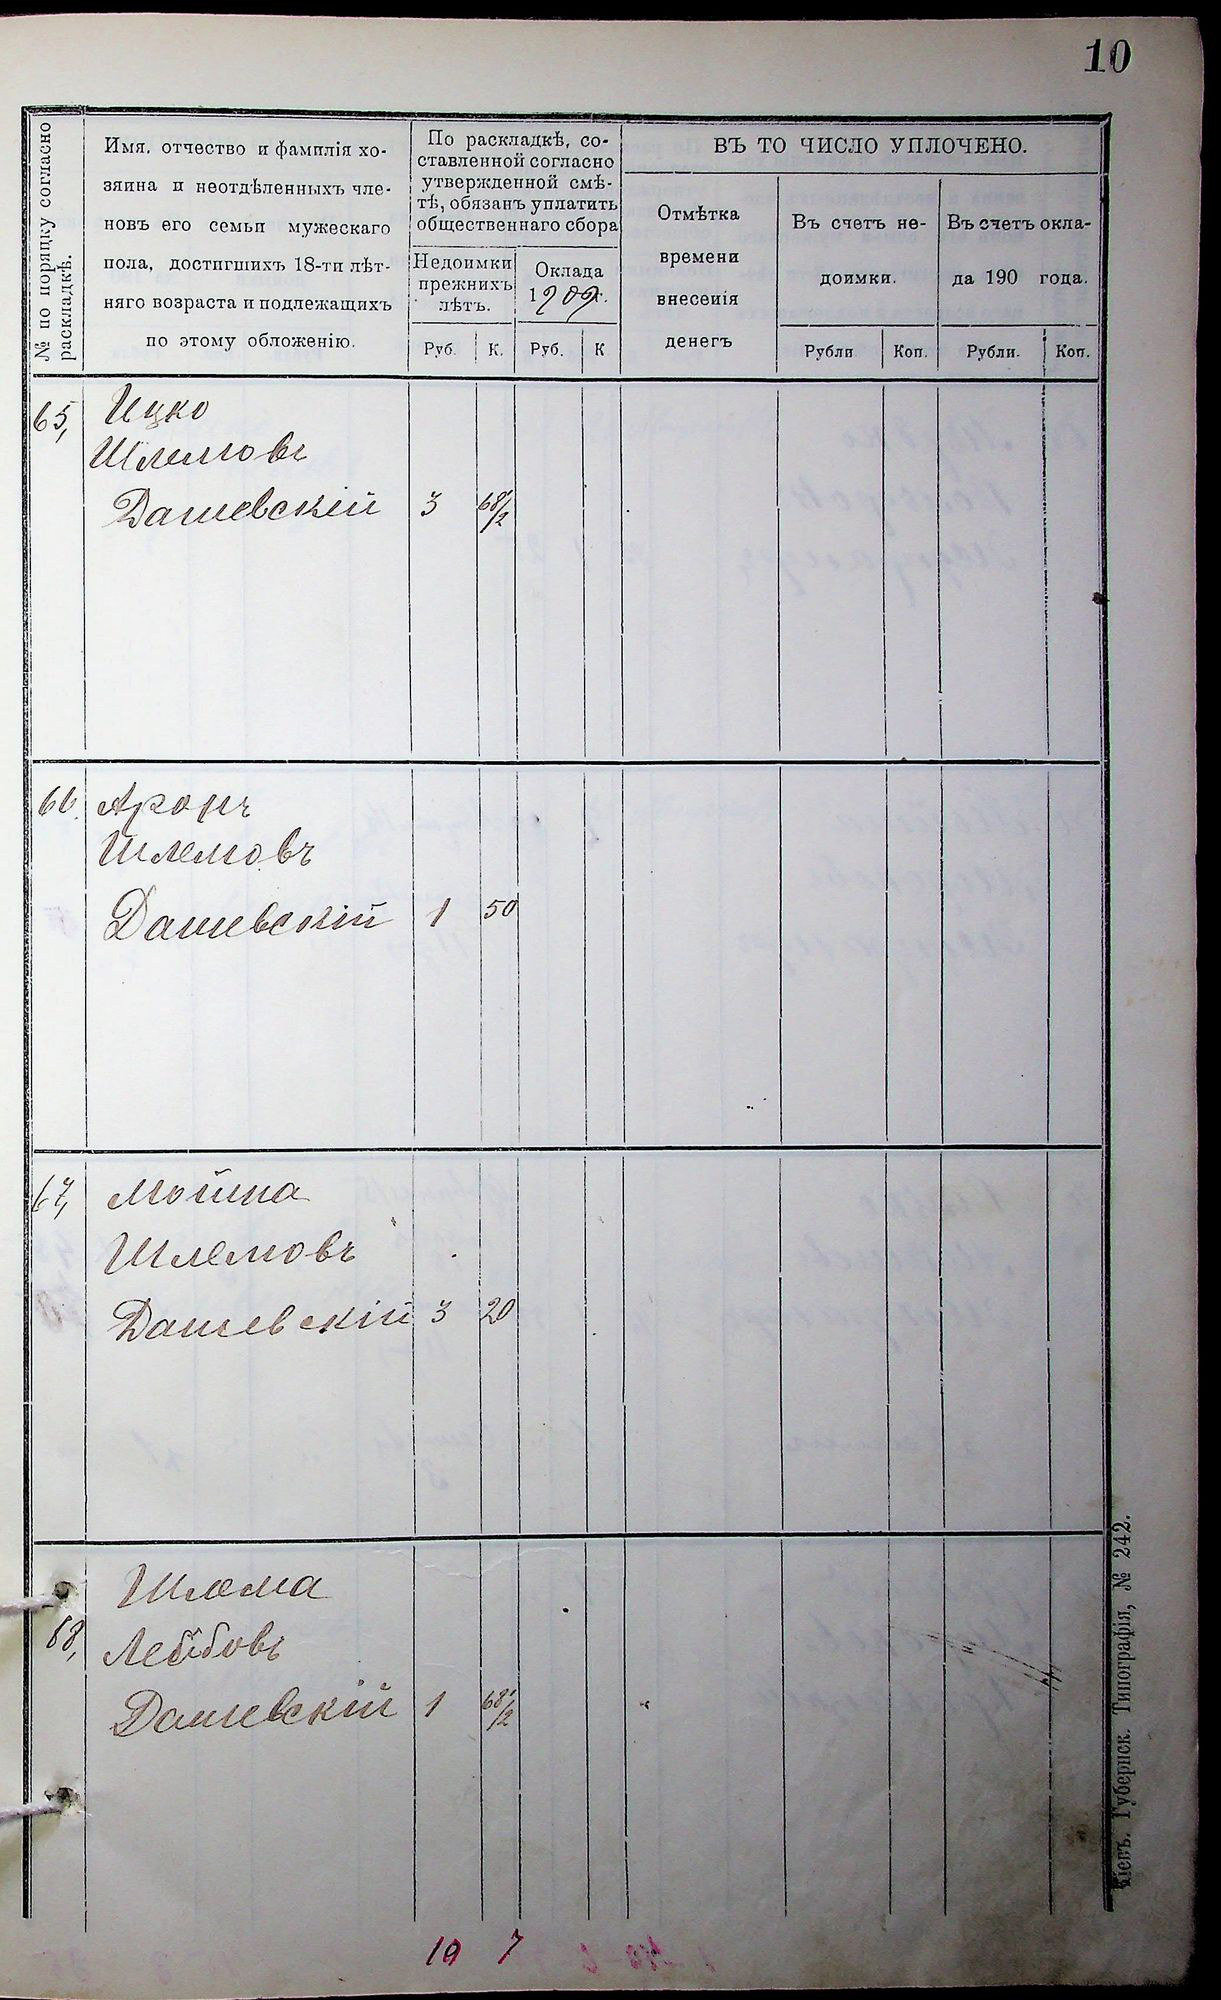 10
№ по порядку согласно
раскладкѣ.
Имя, отчество и фамилія хо-
зяина и неотдѣленныхъ чле-
новъ его семьи мужескаго
пола, достигшихъ 18-ти лѣт-
няго возраста и подлежащихъ
по этому обложенію.
По раскладкѣ, со-
ставленной согласно
утвержденной смѣ-
тѣ, обязанъ уплатить
общественнаго сбора
Недоимки
прежнихъ
лѣтъ.
Оклада
1909г.
Руб. К. Руб. К
ВЪ ТО ЧИСЛО УПЛОЧЕНО.
Отмѣтка
времени
внесенія
денегъ
Въ счетъ не-
доимки.
Въ счетъ окла-
да 190 года.
Рубли Коп. Рубли. Коп.
65, Ицко
Шлемовъ
Дашевскій 3 68 1/2
66. Аронъ
Шлемовъ
Дашевскій 1 50
67, Мошка
Шлемовъ
Дашевскій 3 20
Шлема
68, Лейбовъ
Дашевскій 1 68 1/2
10 7
Кіевъ. Губернск. Типографія, № 242.